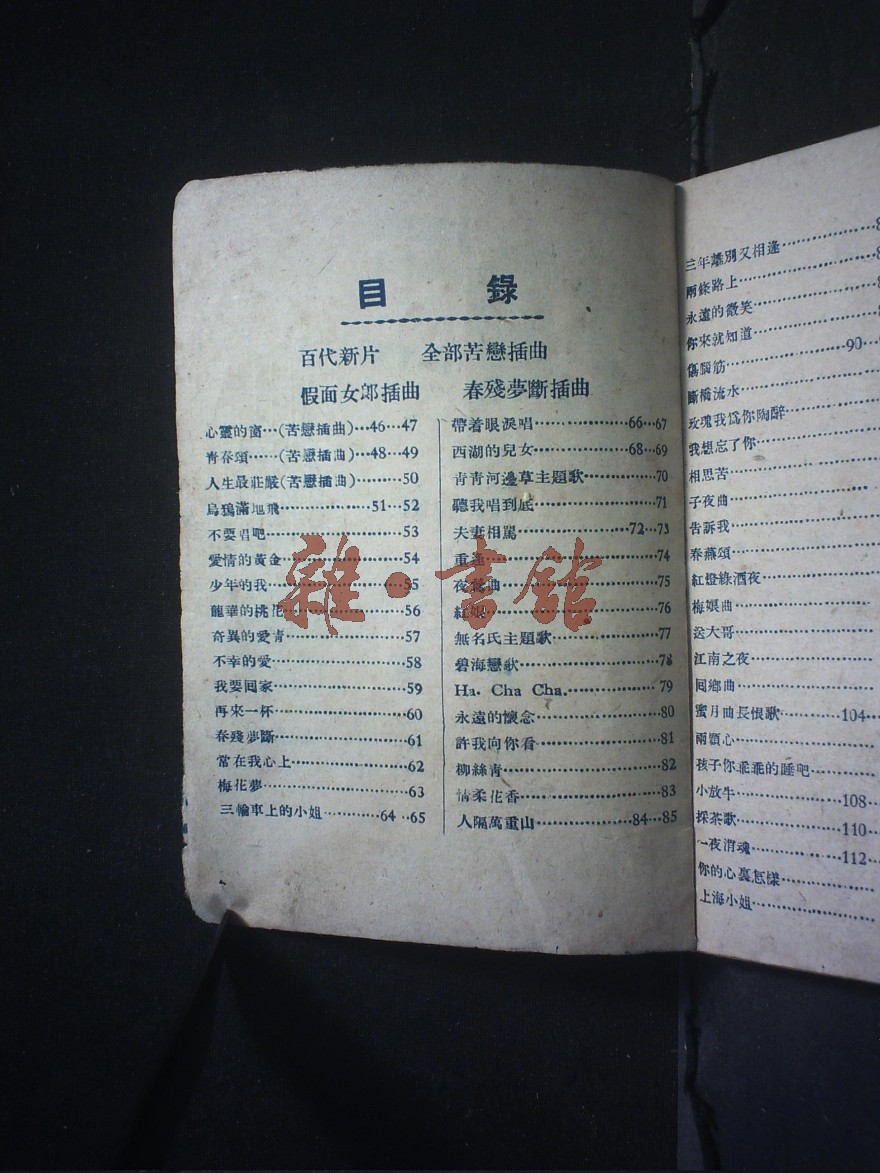 目 錄
百代新片 全部苦戀插曲
假面女郎插曲 春殘夢斷插曲
心靈的窗…(苦戀插曲)…46…47
青春頌……(苦戀插曲)…48…49
人生最莊嚴(苦戀插曲)………50
烏鴉滿地飛………………51…52
不要唱吧………………………53
愛情的黃金……………………54
少年的我………………………55
龍華的桃花……………………56
奇異的愛情……………………57
不幸的愛………………………58
我要囘家………………………59
再來一杯………………………60
春殘夢斷………………………61
常在我心上……………………62
梅花夢…………………………63
三輪車上的小姐…………64‥65
帶着眼淚唱………………66…67
西湖的兒女………………68…69
青青河邊草主題歌……………70
聽我唱到底……………………71
夫妻相罵…………………72…73
重逢……………………………74
夜鶯曲…………………………75
紅娘……………………………76
無名氏主題歌…………………77
碧海戀歌………………………78
Ha. Cha Cha.…………………79
永遠的懷念……………………80
許我向你看……………………81
柳絲青…………………………82
情柔花香………………………83
人隔萬重山………………84…85
三年離別又相逢………………8
兩條路上………………………8
永遠的微笑……………………8
你來就知道……………………8
傷腦筋……………………90…6
斷橋流水………………………
玫瑰我爲你陶醉………………
我想忘了你……………………
相思苦…………………………
子夜曲…………………………
告訴我…………………………
春燕頌…………………………
紅燈綠酒夜……………………
梅娘曲…………………………
送大哥…………………………
江南之夜………………………
囘鄉曲…………………………
蜜月曲長恨歌……………104…
兩顆心…………………………
孩子你乖乖的睡吧……………
小放牛……………………108…
採茶歌……………………110…
一夜消魂…………………112…
你的心裏怎樣…………………
上海小姐………………………
雜·書館